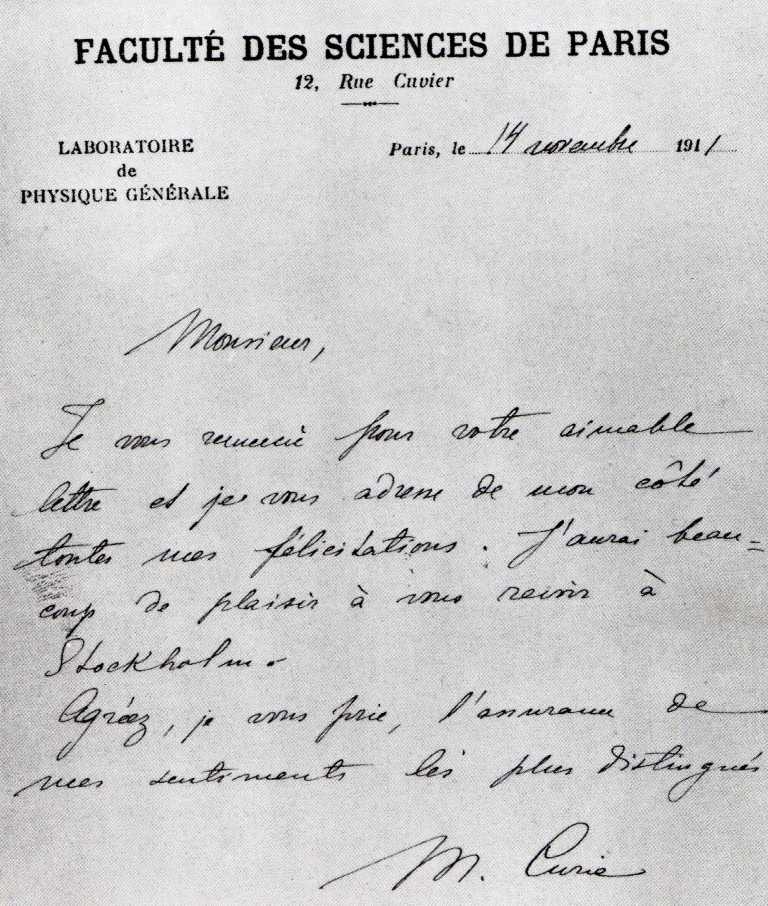 FACULTÉ DES SCIENCES DE PARIS
12, Rue Cuvier
LABORATOIRE
de
PHYSIQUE GÉNÉRALE
Paris, le 14 novembre 1911
Monsieur,
Je vous remercie pour votre aimable
lettre et je vous adresse de mon côté
toutes mes félicitations. J'aurai beau=
coup de plaisir à vous revoir à
Stockholm.
Agréez, je vous prie, l'assurance de
mes sentiments les plus distingués
M. Curie